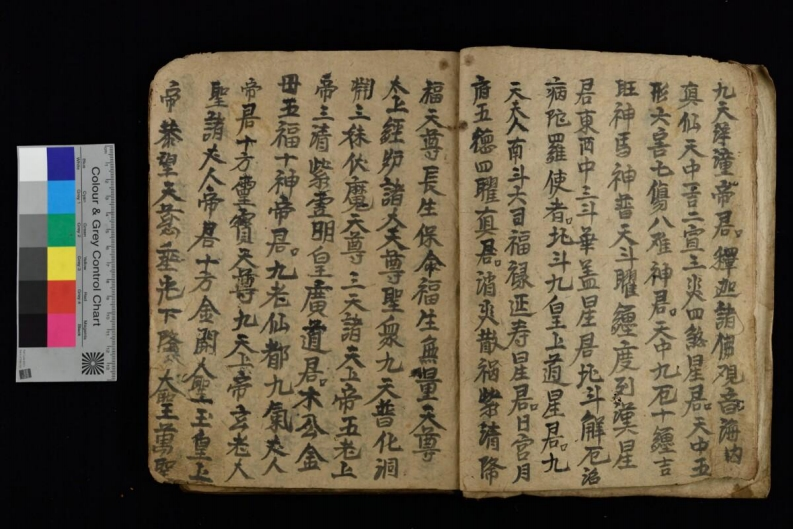 九天梓潼帝君釋迦諸佛观音海内
真仙天中苦二宣三災四煞星君天中五
形六害七傷八难神君天中九厄十纏吉
旺神馬神普天斗曜纏度列漢星
君東西中三斗華盖星君北斗解厄詔
病陀羅使者北斗九皇上道星君九
天夫人南斗六司福禄延寿星君日宫月
府五德四曜真君消災散福紫請降
福天尊長生保命福生無量天尊
太上經籙諸大天尊聖衆九天普化洞
淵三昧伏魔天尊三天諸天上帝五老上
帝三清紫雲明皇廣道君木公金
母五福十神帝君九老仙都九氣夫人
帝君十方靈寳天尊九天上帝玄老人
聖諸夫人帝君十方金闕人聖玉皇上
帝恭望天慈垂光下降大聖王萬聖
Colour & Grey Control Chart